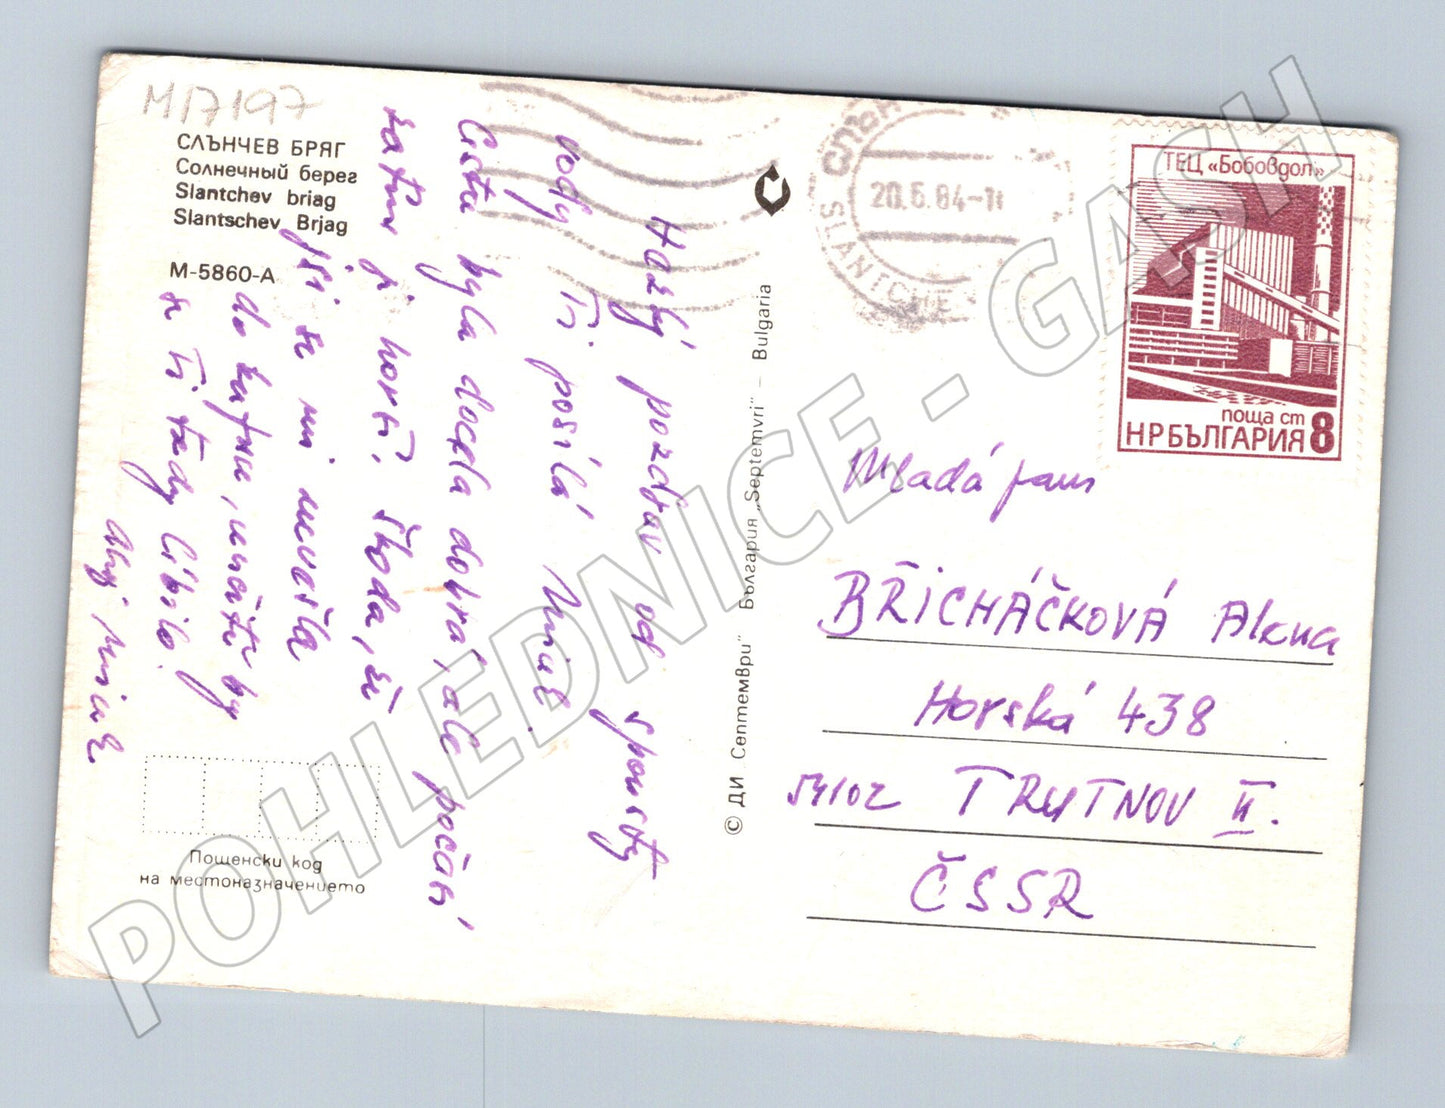 M17197
СЛЪНЧЕВ БРЯГ
Солнечный берег
Slantchev briag
Slantschev Brjag
M-5860-A
Hezký pozdrav od spousty
vody Ti posílá Mirek
Cesta byla docela dobrá, ale počasí
zatím je horší. Škoda, že
jsi se mi nevešla
do kufru, určitě by
se Ti tady líbilo!
Ahoj Mirek
Пощенски код
на местоназначението
© ДИ „Септември“ България „Septemvri“ – Bulgaria
СЛЪН
20.6.84-11
SLANTCHE
ТЕЦ «Бобовдол»
поща ст 8
НРБЪЛГАРИЯ
Mladá paní
BŘICHÁČKOVÁ Alena
Horská 438
54102 TRUTNOV II.
ČSSR
POHLEDNICE - GASH